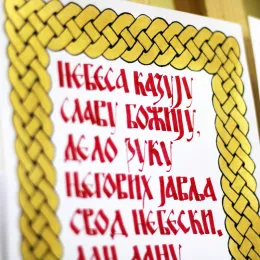 НЕБЕСА КАЗУЈУ
СЛАВУ БОЖИЈУ,
ДЕЛО РУКУ
ЊЕГОВИХ ЈАВЉА
СВОД НЕБЕСКИ.
ДАН ДАНУ